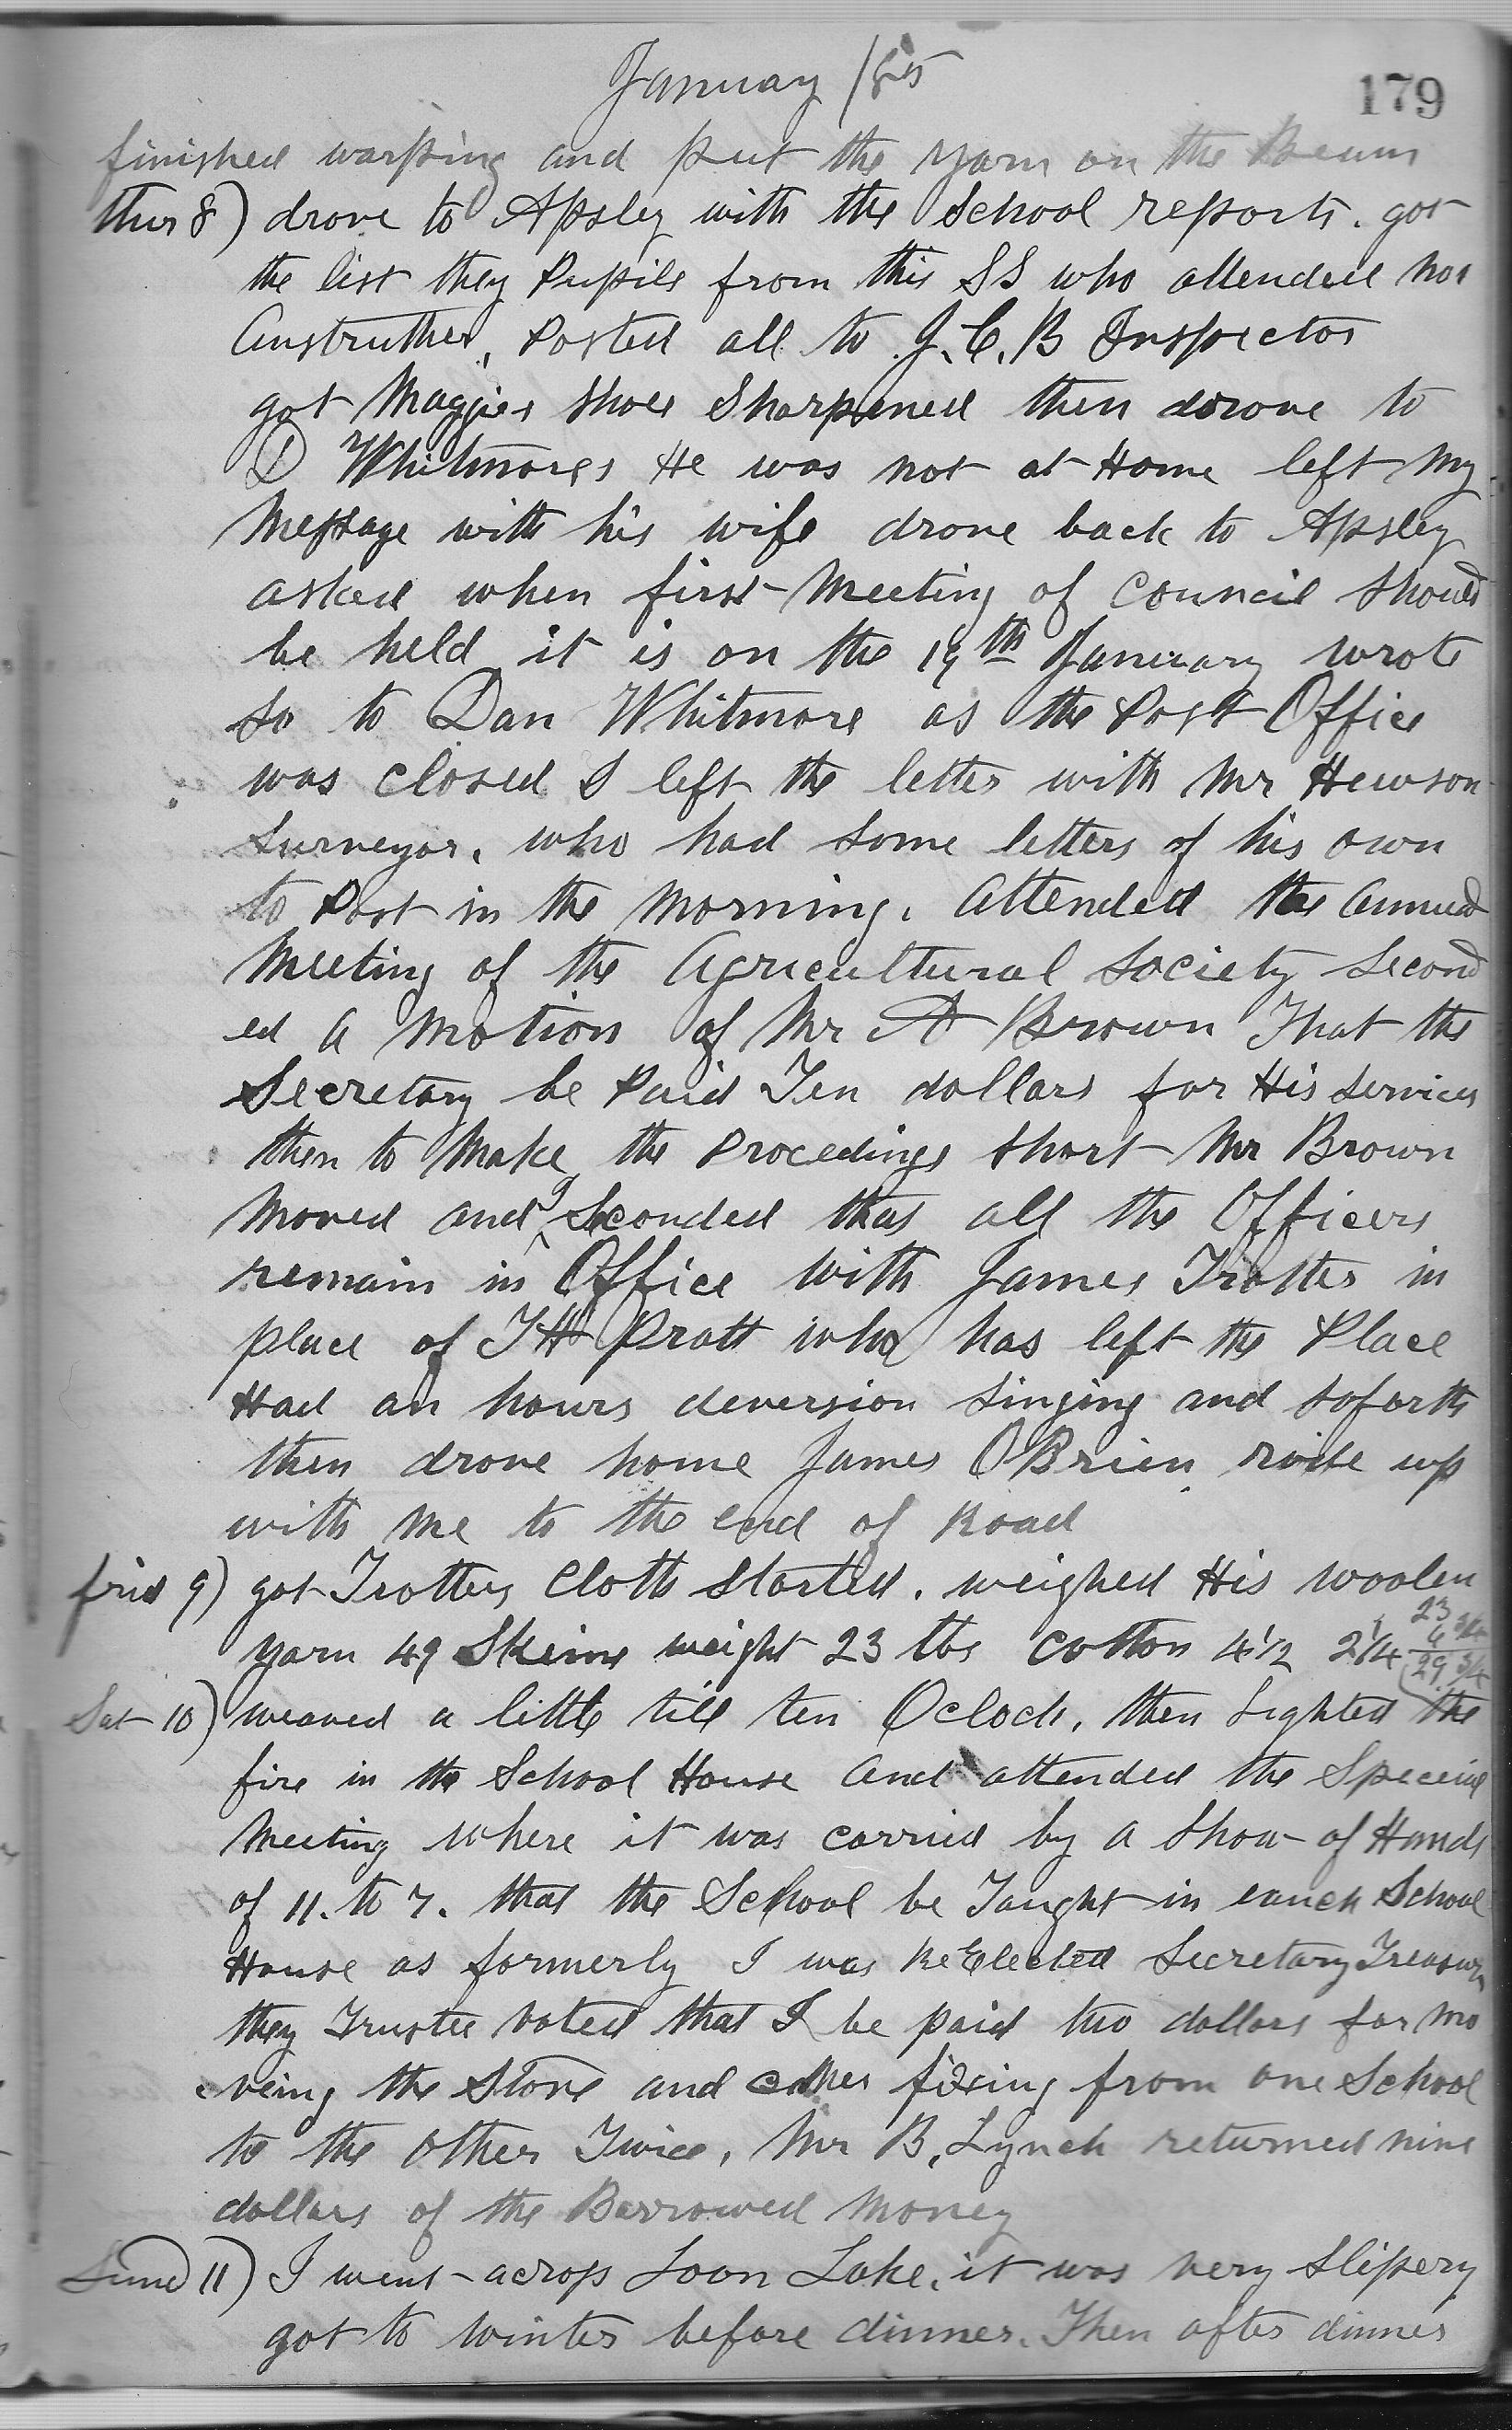 January /85
179
finished warping and put the yarn on the Beam
thur 8) drove to Apsley with the School reports. got
the list they Pupils from this SS who attended No 1
Anstruther, Posted all to J. C. B Inspector
got Maggies shoes Sharpened then drove to
D Whitmores He was not at Home left My
Message with his wife drove back to Apsley
asked when first Meeting of Council should
be held it is on the 19th January wrote
so to Dan Whitmore as the Post Office
was closed I left the letter with Mr Hewson
Surveyor. who had some letters of his own
to Post in the Morning. attended the annual
Meeting of the Agricultural Society Second
ed a Motion of Mr A Brown That the
Secretary be Paid Ten dollars for His services
then to Make the Procedings short Mr Brown
Moved and I Seconded that all the Officers
remain in Office with James Trotter in
place of T H Pratt who has left the Place
Had an hours deversion singing and soforth
then drove home James OBrien rode up
with Me to the end of Road
frid 9) got Trotters Cloth Started. weighed His woolen
yarn 49 Skeins weight 23 lbs Cotton 4 1/2 2 1/4
23
6 3/4
29 3/4
Sat 10) weaved a little till ten Oclock. then Lighted the
fire in the School House and attended the Special
Meeting where it was carried by a Show of Hands
of 11. to 7. that the School be Taught in eanch School
House as formerly I was ReElected Secretary Treasurer
they Trustee voted that I be paid two dollars for mo
veing the Stove and other fixing from one School
to the other Twice, Mr B, Lynch returned nine
dollars of the Borrowed Money
Sund 11) I went across Loon Lake. it was very Slipery
got to Winters before dinner. Then after dinner